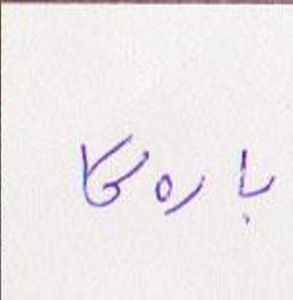 بارہ کا